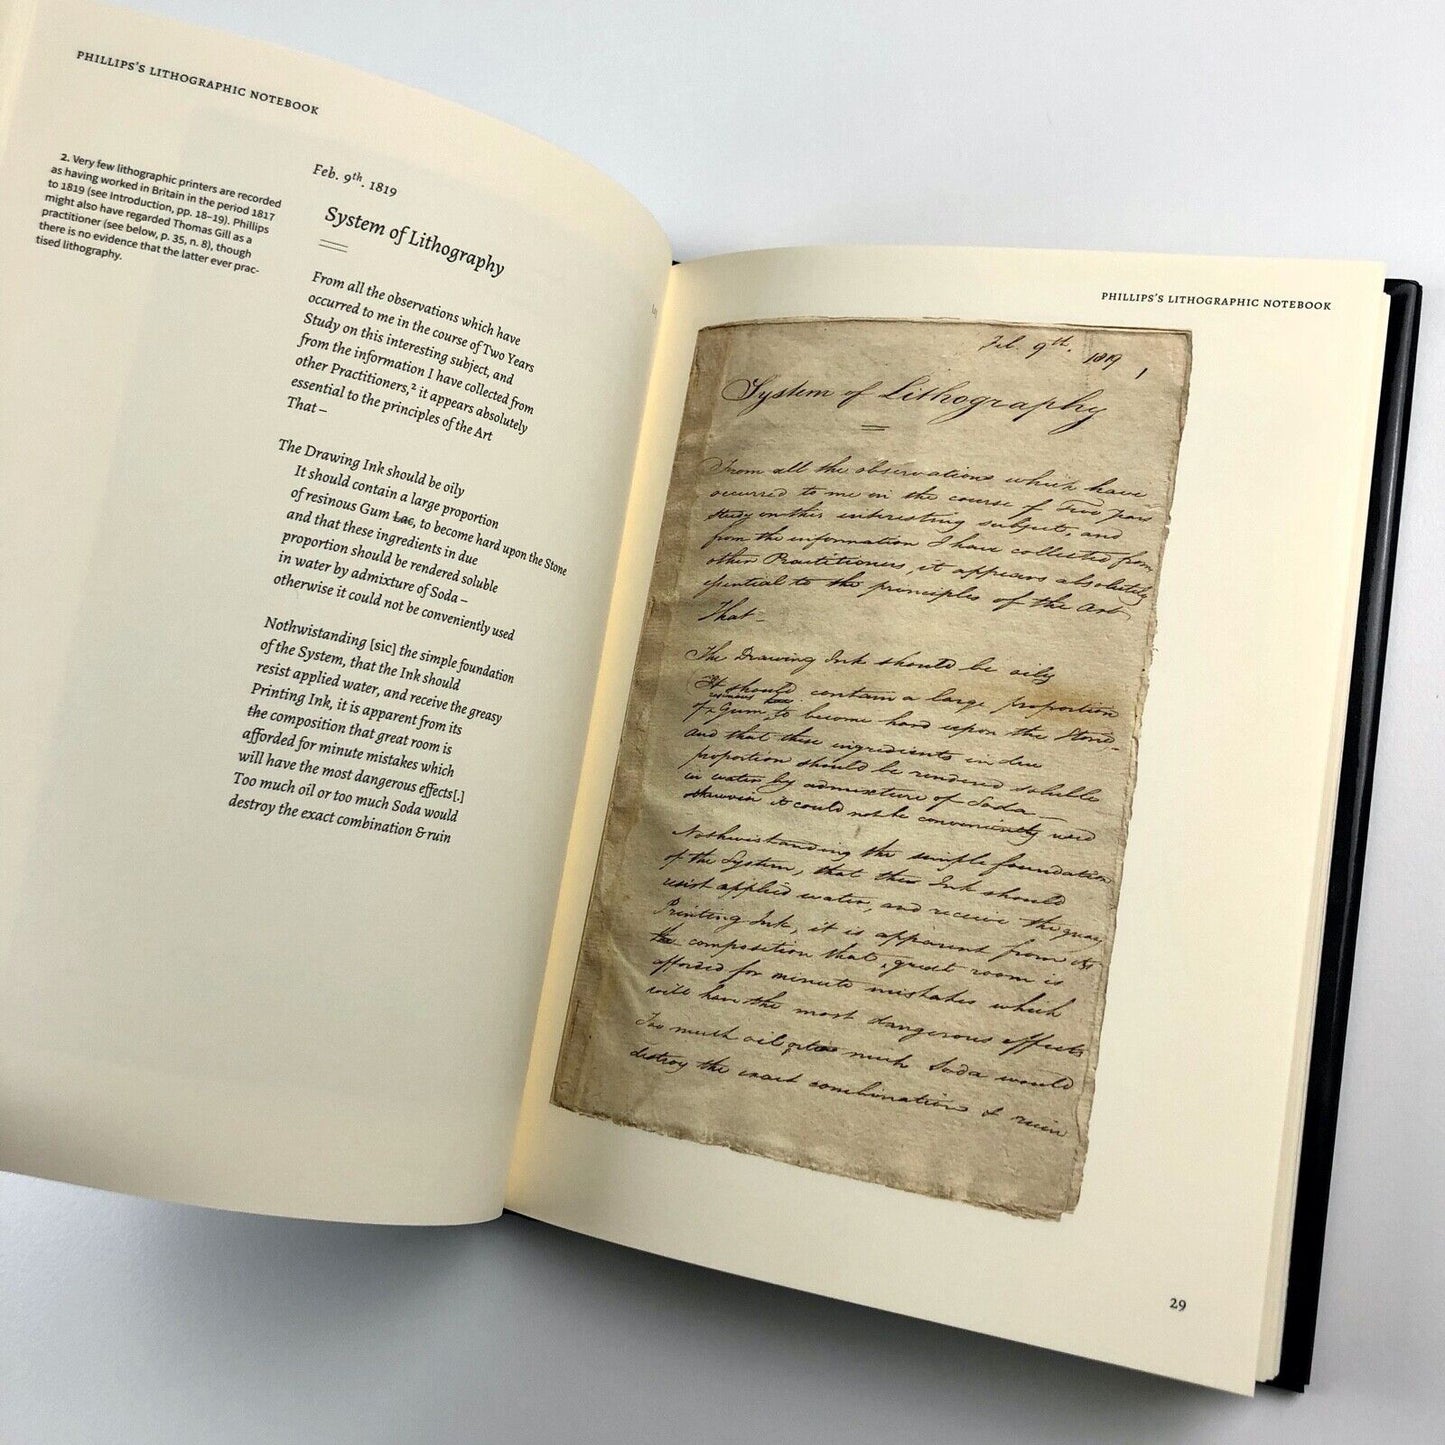 PHILLIPS'S LITHOGRAPHIC NOTEBOOK
2. Very few lithographic printers are recorded
as having worked in Britain in the period 1817
to 1819 (see Introduction, pp. 18–19). Phillips
might also have regarded Thomas Gill as a
practitioner (see below, p. 35, n. 8), though
there is no evidence that the latter ever prac-
tised lithography.
Feb. 9th. 1819
System of Lithography
From all the observations which have
occurred to me in the course of Two Years
Study on this interesting subject, and
from the information I have collected from
other Practitioners,² it appears absolutely
essential to the principles of the Art
That –
The Drawing Ink should be oily
It should contain a large proportion
of resinous Gum Lac, to become hard upon the Stone
and that these ingredients in due
proportion should be rendered soluble
in water by admixture of Soda –
otherwise it could not be conveniently used
Nothwistanding [sic] the simple foundation
of the System, that the Ink should
resist applied water, and receive the greasy
Printing Ink, it is apparent from its
the composition that great room is
afforded for minute mistakes which
will have the most dangerous effects[.]
Too much oil or too much Soda would
destroy the exact combination & ruin
PHILLIPS'S LITHOGRAPHIC NOTEBOOK
Feb. 9th. 1819
1
System of Lithography
From all the observations which have
occurred to me in the course of Two years
Study on this interesting subject, and
from the information I have collected from
other Practitioners, it appears absolutely
essential to the principles of the Art
That –
The Drawing Ink should be oily
It should contain a large proportion
resinous Lac
of Gum, to become hard upon the Stone –
and that these ingredients in due
proportion should be rendered soluble
in water by admixture of Soda –
otherwise it could not be conveniently used
Nothwistanding the simple foundation
of the System, that the Ink should
resist applied water, and receive the greasy
Printing Ink, it is apparent from its
the composition that great room is
afforded for minute mistakes which
will have the most dangerous effects
Too much oil or too much Soda would
destroy the exact combination & ruin
29